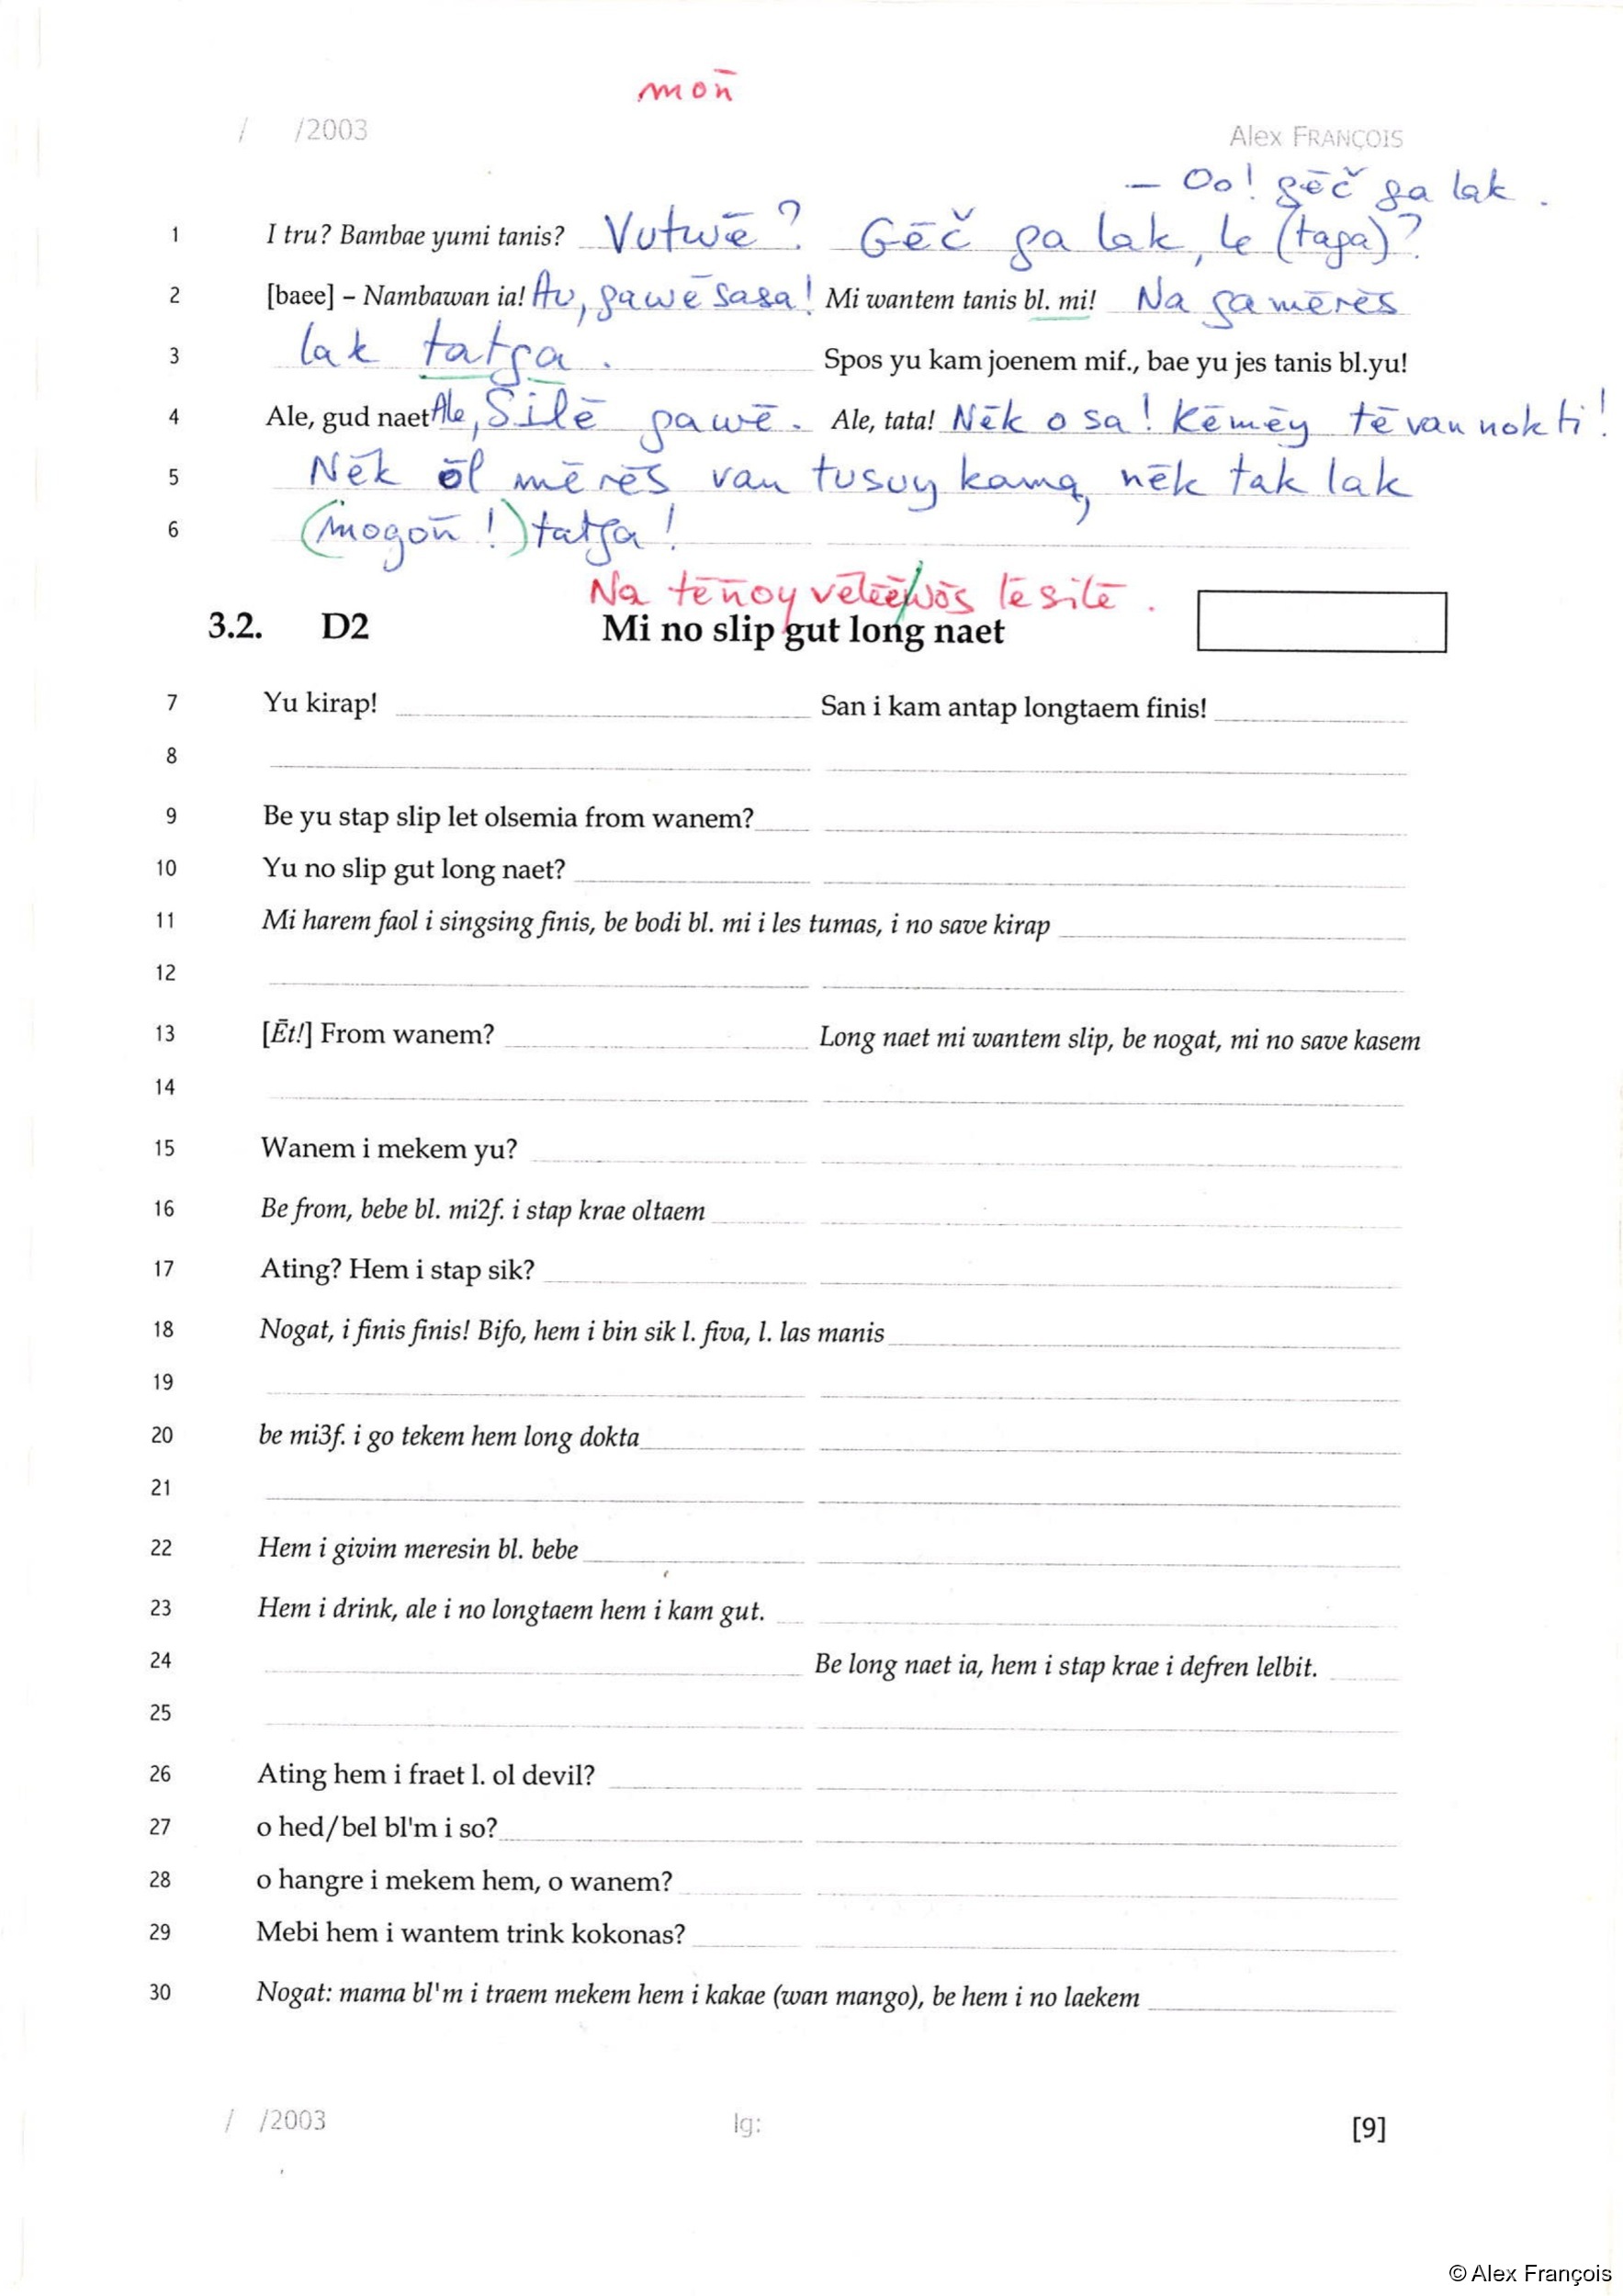 mon̄
/ /2003 Alex FRANÇOIS
– Oo! gēč ga lak.
1 I tru? Bambae yumi tanis? Vutwē? Gēč ga lak, le (taga)?
2 [baee] – Nambawan ia! Av, gawē sasa! Mi wantem tanis bl. mi! Na ga mērēs
3 lak tatga. Spos yu kam joenem mif., bae yu jes tanis bl.yu!
4 Ale, gud naet Ale, Silē gawē. Ale, tata! Nēk o sa! Kēmēy tē van nok ti!
5 Nēk ōl mērēs van tusuy kama, nēk tak lak
6 (mogon̄!) tatga!
Na tēn̄oy vētēēwōs lē silē.
3.2. D2 Mi no slip gut long naet
7 Yu kirap! San i kam antap longtaem finis!
8
9 Be yu stap slip let olsemia from wanem?
10 Yu no slip gut long naet?
11 Mi harem faol i singsing finis, be bodi bl. mi i les tumas, i no save kirap
12
13 [Ēt!] From wanem? Long naet mi wantem slip, be nogat, mi no save kasem
14
15 Wanem i mekem yu?
16 Be from, bebe bl. mi2f. i stap krae oltaem
17 Ating? Hem i stap sik?
18 Nogat, i finis finis! Bifo, hem i bin sik l. fiva, l. las manis
19
20 be mi3f. i go tekem hem long dokta
21
22 Hem i givim meresin bl. bebe
23 Hem i drink, ale i no longtaem hem i kam gut.
24 Be long naet ia, hem i stap krae i defren lelbit.
25
26 Ating hem i fraet l. ol devil?
27 o hed/bel bl'm i so?
28 o hangre i mekem hem, o wanem?
29 Mebi hem i wantem trink kokonas?
30 Nogat: mama bl'm i traem mekem hem i kakae (wan mango), be hem i no laekem
/ /2003 lg: [9]
© Alex François